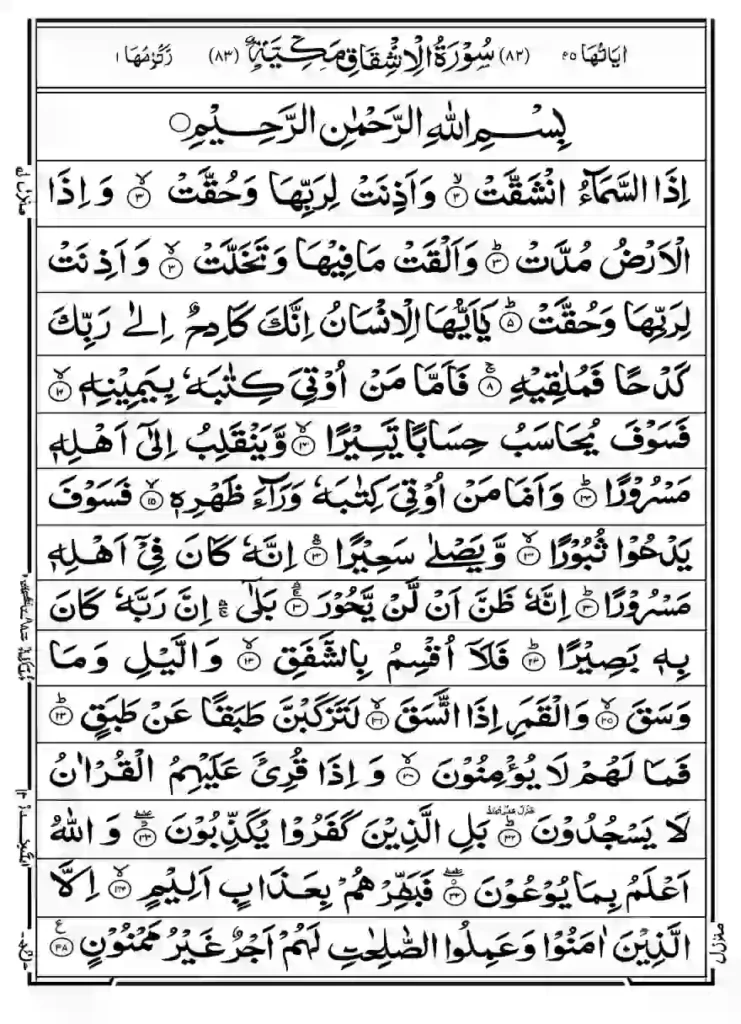 اٰیَاتُهَا ٤٥ (٨٢) سُوْرَةُ الْاِنْشِقَاقِ مَكِّیَّةٌ (٨٣) رُكُوْعُهَا ١
بِسْمِ اللهِ الرَّحْمٰنِ الرَّحِیْمِ
اِذَا السَّمَآءُ انْشَقَّتْ ۙ﴿٢﴾ وَاَذِنَتْ لِرَبِّهَا وَحُقَّتْ ۙ﴿٣﴾ وَاِذَا
الْاَرْضُ مُدَّتْ ؕ﴿٣﴾ وَاَلْقَتْ مَا فِیْهَا وَتَخَلَّتْ ۙ﴿٣﴾ وَاَذِنَتْ
لِرَبِّهَا وَحُقَّتْ ؕ﴿٥﴾ یٰۤاَیُّهَا الْاِنْسَانُ اِنَّكَ كَادِحٌ اِلٰی رَبِّكَ
كَدْحًا فَمُلٰقِیْهِ ۚ﴿٨﴾ فَاَمَّا مَنْ اُوْتِیَ كِتٰبَهٗ بِیَمِیْنِهٖ ۙ﴿١٢﴾
فَسَوْفَ یُحَاسَبُ حِسَابًا یَّسِیْرًا ۙ﴿١٢﴾ وَّیَنْقَلِبُ اِلٰۤی اَهْلِهٖ
مَسْرُوْرًا ؕ﴿١٣﴾ وَاَمَّا مَنْ اُوْتِیَ كِتٰبَهٗ وَرَآءَ ظَهْرِهٖ ۙ﴿١٥﴾ فَسَوْفَ
یَدْعُوْا ثُبُوْرًا ۙ﴿١٣﴾ وَّیَصْلٰی سَعِیْرًا ؕ﴿١٣﴾ اِنَّهٗ كَانَ فِیْۤ اَهْلِهٖ
مَسْرُوْرًا ؕ﴿١٣﴾ اِنَّهٗ ظَنَّ اَنْ لَّنْ یَّحُوْرَ ۚ﴿١٣﴾ بَلٰۤی ۚ اِنَّ رَبَّهٗ كَانَ
بِهٖ بَصِیْرًا ؕ﴿٢٤﴾ فَلَاۤ اُقْسِمُ بِالشَّفَقِ ۙ﴿١٣﴾ وَالَّیْلِ وَمَا
وَسَقَ ۙ﴿٢٥﴾ وَالْقَمَرِ اِذَا اتَّسَقَ ۙ﴿٢٦﴾ لَتَرْكَبُنَّ طَبَقًا عَنْ طَبَقٍ ؕ﴿٢٣﴾
فَمَا لَهُمْ لَا یُؤْمِنُوْنَ ۙ﴿٢٠﴾ وَاِذَا قُرِئَ عَلَیْهِمُ الْقُرْاٰنُ
لَا یَسْجُدُوْنَ ؕ﴿٢٢﴾ بَلِ الَّذِیْنَ كَفَرُوْا یُكَذِّبُوْنَ ؗ﴿٢٣﴾ وَاللهُ
اَعْلَمُ بِمَا یُوْعُوْنَ ؗ﴿٢٣﴾ فَبَشِّرْهُمْ بِعَذَابٍ اَلِیْمٍ ۙ﴿٢٤﴾ اِلَّا
الَّذِیْنَ اٰمَنُوْا وَعَمِلُوا الصّٰلِحٰتِ لَهُمْ اَجْرٌ غَیْرُ مَمْنُوْنٍ ﴿٢٨﴾